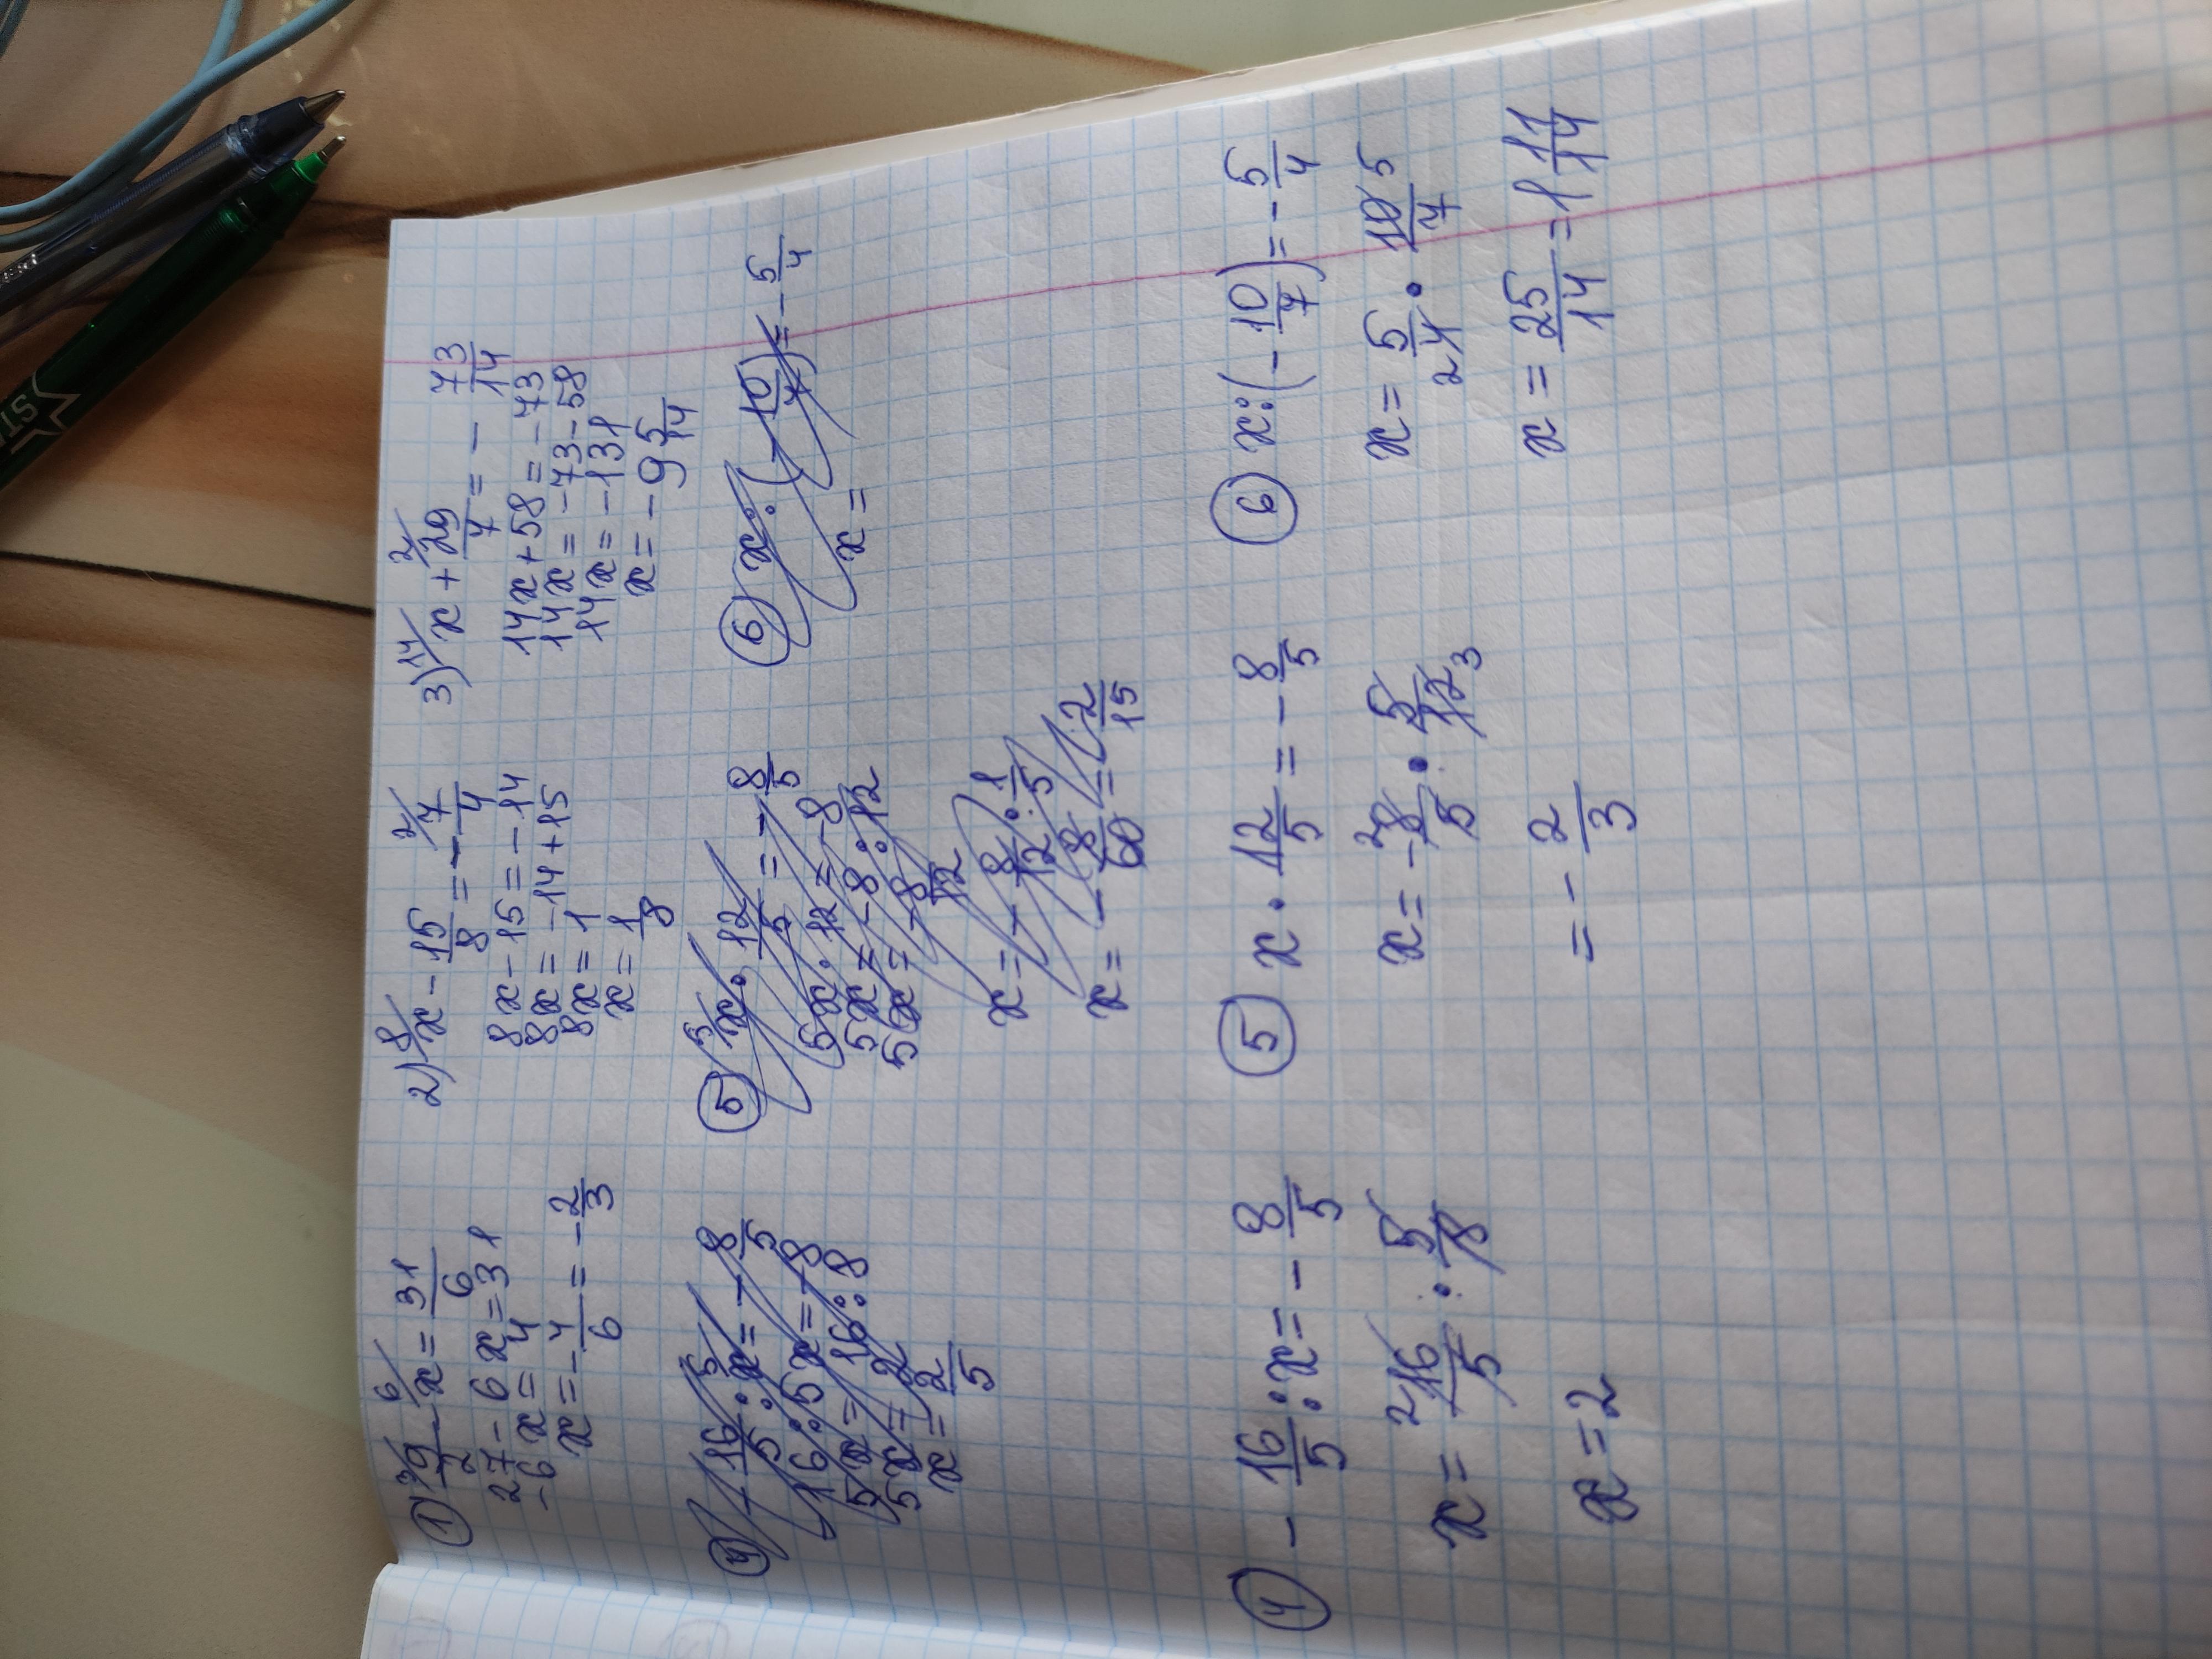 ① 9/2 - x = 31/6
27 - 6x = 31
-6x = 4
x = -4/6 = -2/3
2) x - 15/8 = -7/4
8x - 15 = -14
8x = -14 + 15
8x = 1
x = 1/8
3) x + 29/7 = -73/14
14x + 58 = -73
14x = -73 - 58
14x = -131
x = -9 5/14
④ -16/5 : x = -8/5
16 : 5x = -8
5x = 16 : 8
5x = 2
x = 2/5
⑤ x · 12/5 = -8/5
5x · 12 = -8
5x = -8 : 12
5x = -8/12
x = -8/12 : 1/5
x = -8/60 = 2/15
⑥ x : (-10/7) = -5/4
x =
④ -16/5 : x = -8/5
x = 16/5 · 5/8
x = 2
⑤ x · 12/5 = -8/5
x = -8/5 · 5/12
= -2/3
⑥ x : (-10/7) = -5/4
x = 5/4 · 10/7
x = 25/14 = 1 11/14
STA